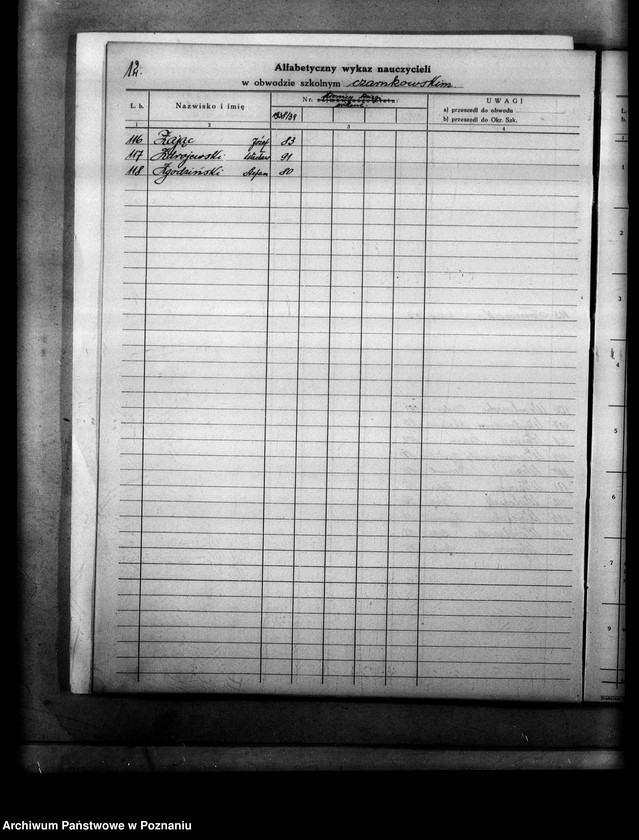 12.
Alfabetyczny wykaz nauczycieli
w obwodzie szkolnym czarnkowskim
L. b. Nazwisko i imię Nr. UWAGI
a) przeszedł do obwodu
b) przeszedł do Okr. Szk.
1938/39
1 2 3 4
116 Zając Józef 83
117 Zdrojewski 91
118 Zgodziński Stefan 80
1
2
3
4
5
6
7
9
Archiwum Państwowe w Poznaniu